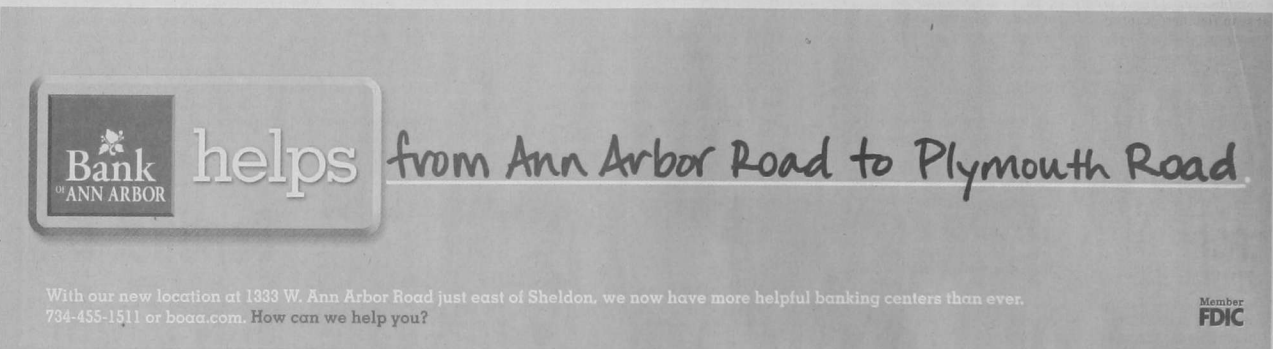 Bank
OF ANN ARBOR
helps from Ann Arbor Road to Plymouth Road.
With our new location at 1333 W. Ann Arbor Road just east of Sheldon, we now have more helpful banking centers than ever.
734-455-1511 or boaa.com. How can we help you?
Member
FDIC